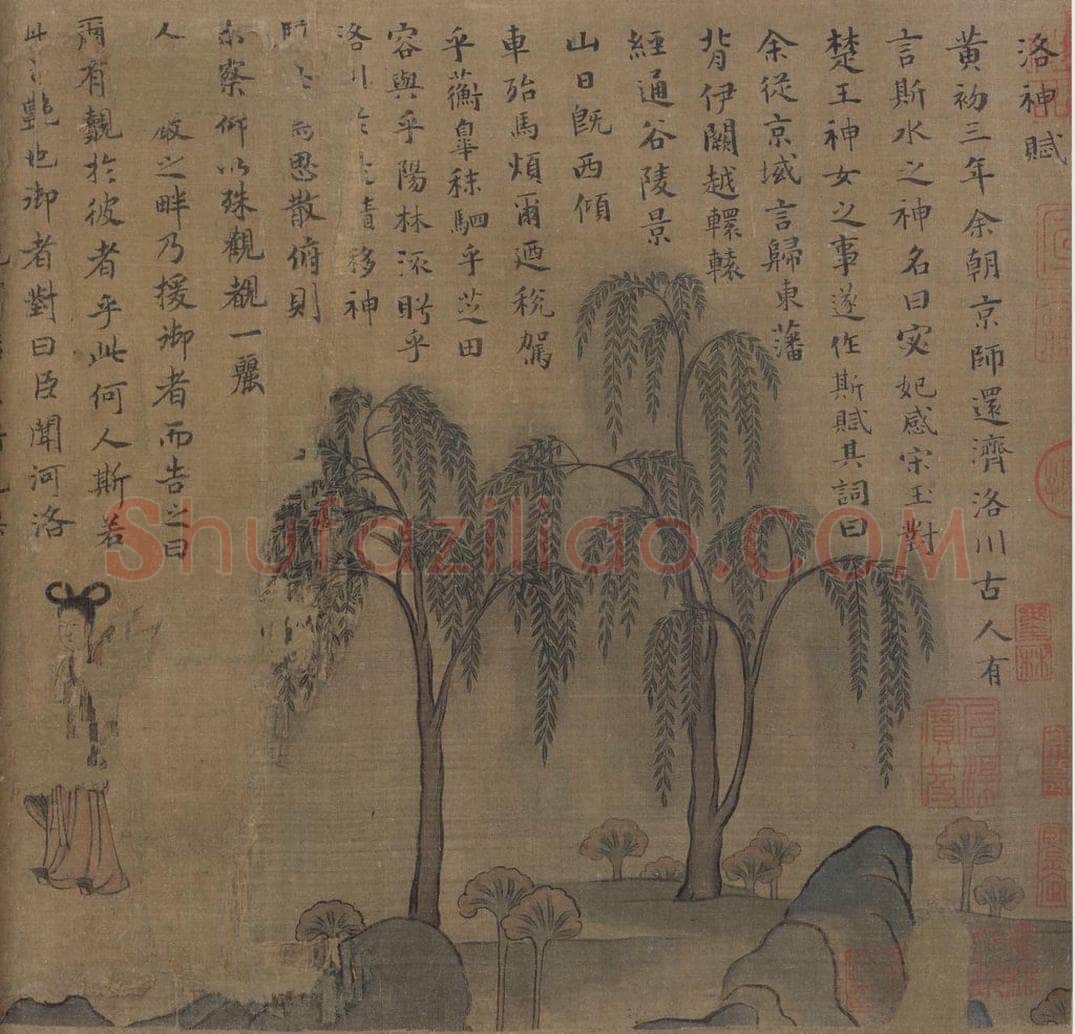 洛神賦
黄初三年余朝京師還濟洛川古人有
言斯水之神名曰宓妃感宋玉對
楚王神女之事遂作斯賦其詞曰
余從京域言歸東藩
背伊闕越轘轅
經通谷陵景
山日既西傾
車殆馬煩爾迺稅駕
乎蘅皐秣駟乎芝田
容與乎陽林流眄乎
洛川於移神
而思散俯則
未察仰以殊觀覩一麗
人之畔乃援御者而告之曰
爾有覿於彼者乎此何人斯若
此艷也御者對曰臣聞河洛
Shufaziliao.COM